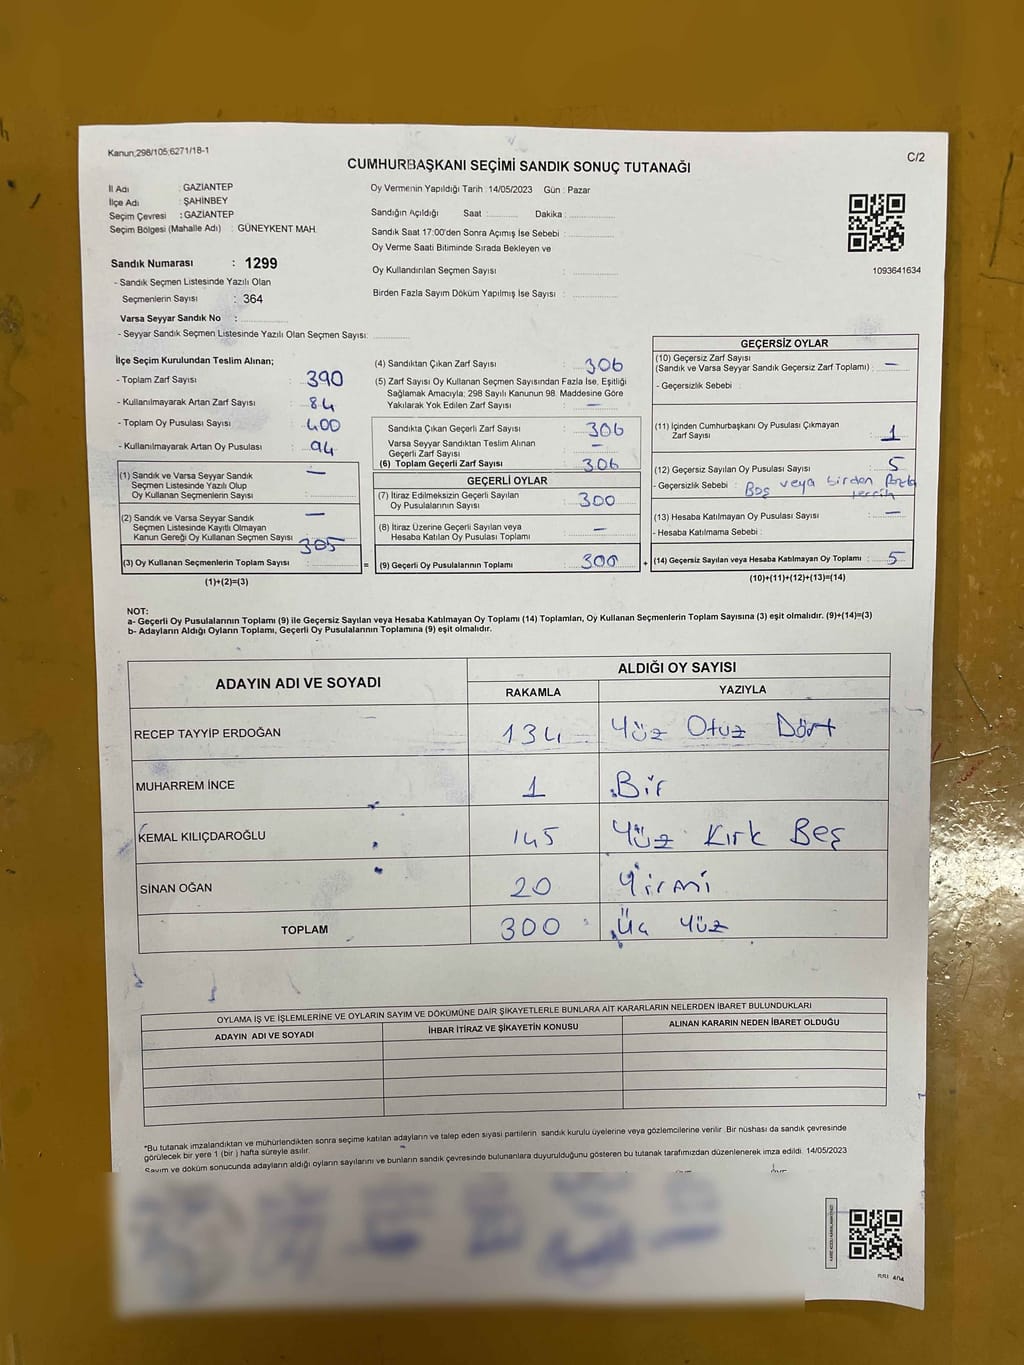 Kanun;298/105;6271/18-1
C/2
CUMHURBAŞKANI SEÇİMİ SANDIK SONUÇ TUTANAĞI
İl Adı : GAZİANTEP
İlçe Adı : ŞAHİNBEY
Seçim Çevresi : GAZİANTEP
Seçim Bölgesi (Mahalle Adı) : GÜNEYKENT MAH.
Sandık Numarası : 1299
- Sandık Seçmen Listesinde Yazılı Olan
Seçmenlerin Sayısı : 364
Varsa Seyyar Sandık No :
- Seyyar Sandık Seçmen Listesinde Yazılı Olan Seçmen Sayısı:
Oy Vermenin Yapıldığı Tarih : 14/05/2023 Gün : Pazar
Sandığın Açıldığı Saat : Dakika :
Sandık Saat 17:00'den Sonra Açımış İse Sebebi :
Oy Verme Saati Bitiminde Sırada Bekleyen ve
Oy Kullandırılan Seçmen Sayısı :
Birden Fazla Sayım Döküm Yapılmış İse Sayısı :
1093641634
İlçe Seçim Kurulundan Teslim Alınan;
- Toplam Zarf Sayısı : 390
- Kullanılmayarak Artan Zarf Sayısı : 84
- Toplam Oy Pusulası Sayısı : 400
- Kullanılmayarak Artan Oy Pusulası : 94
(1) Sandık ve Varsa Seyyar Sandık
Seçmen Listesinde Yazılı Olup
Oy Kullanan Seçmenlerin Sayısı : —
(2) Sandık ve Varsa Seyyar Sandık
Seçmen Listesinde Kayıtlı Olmayan
Kanun Gereği Oy Kullanan Seçmen Sayısı : —
(3) Oy Kullanan Seçmenlerin Toplam Sayısı : 305
(1)+(2)=(3)
(4) Sandıktan Çıkan Zarf Sayısı : 306
(5) Zarf Sayısı Oy Kullanan Seçmen Sayısından Fazla İse, Eşitliği
Sağlamak Amacıyla; 298 Sayılı Kanunun 98. Maddesine Göre
Yakılarak Yok Edilen Zarf Sayısı : —
Sandıkta Çıkan Geçerli Zarf Sayısı : 306
Varsa Seyyar Sandıktan Teslim Alınan
Geçerli Zarf Sayısı : —
(6) Toplam Geçerli Zarf Sayısı : 306
GEÇERLİ OYLAR
(7) İtiraz Edilmeksizin Geçerli Sayılan
Oy Pusulalarının Sayısı : 300
(8) İtiraz Üzerine Geçerli Sayılan veya
Hesaba Katılan Oy Pusulası Toplamı : —
= (9) Geçerli Oy Pusulalarının Toplamı : 300 +
GEÇERSİZ OYLAR
(10) Geçersiz Zarf Sayısı
(Sandık ve Varsa Seyyar Sandık Geçersiz Zarf Toplamı) : —
- Geçersizlik Sebebi :
(11) İçinden Cumhurbaşkanı Oy Pusulası Çıkmayan
Zarf Sayısı : 1
(12) Geçersiz Sayılan Oy Pusulası Sayısı : 5
- Geçersizlik Sebebi : Boş veya birden fazla
tercih
(13) Hesaba Katılmayan Oy Pusulası Sayısı : —
- Hesaba Katılmama Sebebi :
(14) Geçersiz Sayılan veya Hesaba Katılmayan Oy Toplamı : 5
(10)+(11)+(12)+(13)=(14)
NOT:
a- Geçerli Oy Pusulalarının Toplamı (9) ile Geçersiz Sayılan veya Hesaba Katılmayan Oy Toplamı (14) Toplamları, Oy Kullanan Seçmenlerin Toplam Sayısına (3) eşit olmalıdır. (9)+(14)=(3)
b- Adayların Aldığı Oyların Toplamı, Geçerli Oy Pusulalarının Toplamına (9) eşit olmalıdır.
ADAYIN ADI VE SOYADI ALDIĞI OY SAYISI
RAKAMLA YAZIYLA
RECEP TAYYİP ERDOĞAN 134 Yüz Otuz Dört
MUHARREM İNCE 1 Bir
KEMAL KILIÇDAROĞLU 145 Yüz Kırk Beş
SİNAN OĞAN 20 Yirmi
TOPLAM 300 Üç Yüz
OYLAMA İŞ VE İŞLEMLERİNE VE OYLARIN SAYIM VE DÖKÜMÜNE DAİR ŞİKAYETLERLE BUNLARA AİT KARARLARIN NELERDEN İBARET BULUNDUKLARI
ADAYIN ADI VE SOYADI İHBAR İTİRAZ VE ŞİKAYETİN KONUSU ALINAN KARARIN NEDEN İBARET OLDUĞU
*Bu tutanak imzalandıktan ve mühürlendikten sonra seçime katılan adayların ve talep eden siyasi partilerin sandık kurulu üyelerine veya gözlemcilerine verilir. Bir nüshası da sandık çevresinde
görülecek bir yere 1 (bir) hafta süreyle asılır.
Sayım ve döküm sonucunda adayların aldığı oyların sayılarını ve bunların sandık çevresinde bulunanlara duyurulduğunu gösteren bu tutanak tarafımızdan düzenlenerek imza edildi. 14/05/2023